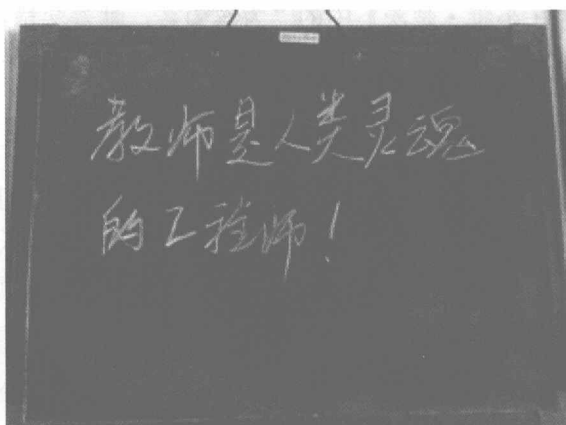 教师是人类灵魂
的工程师！